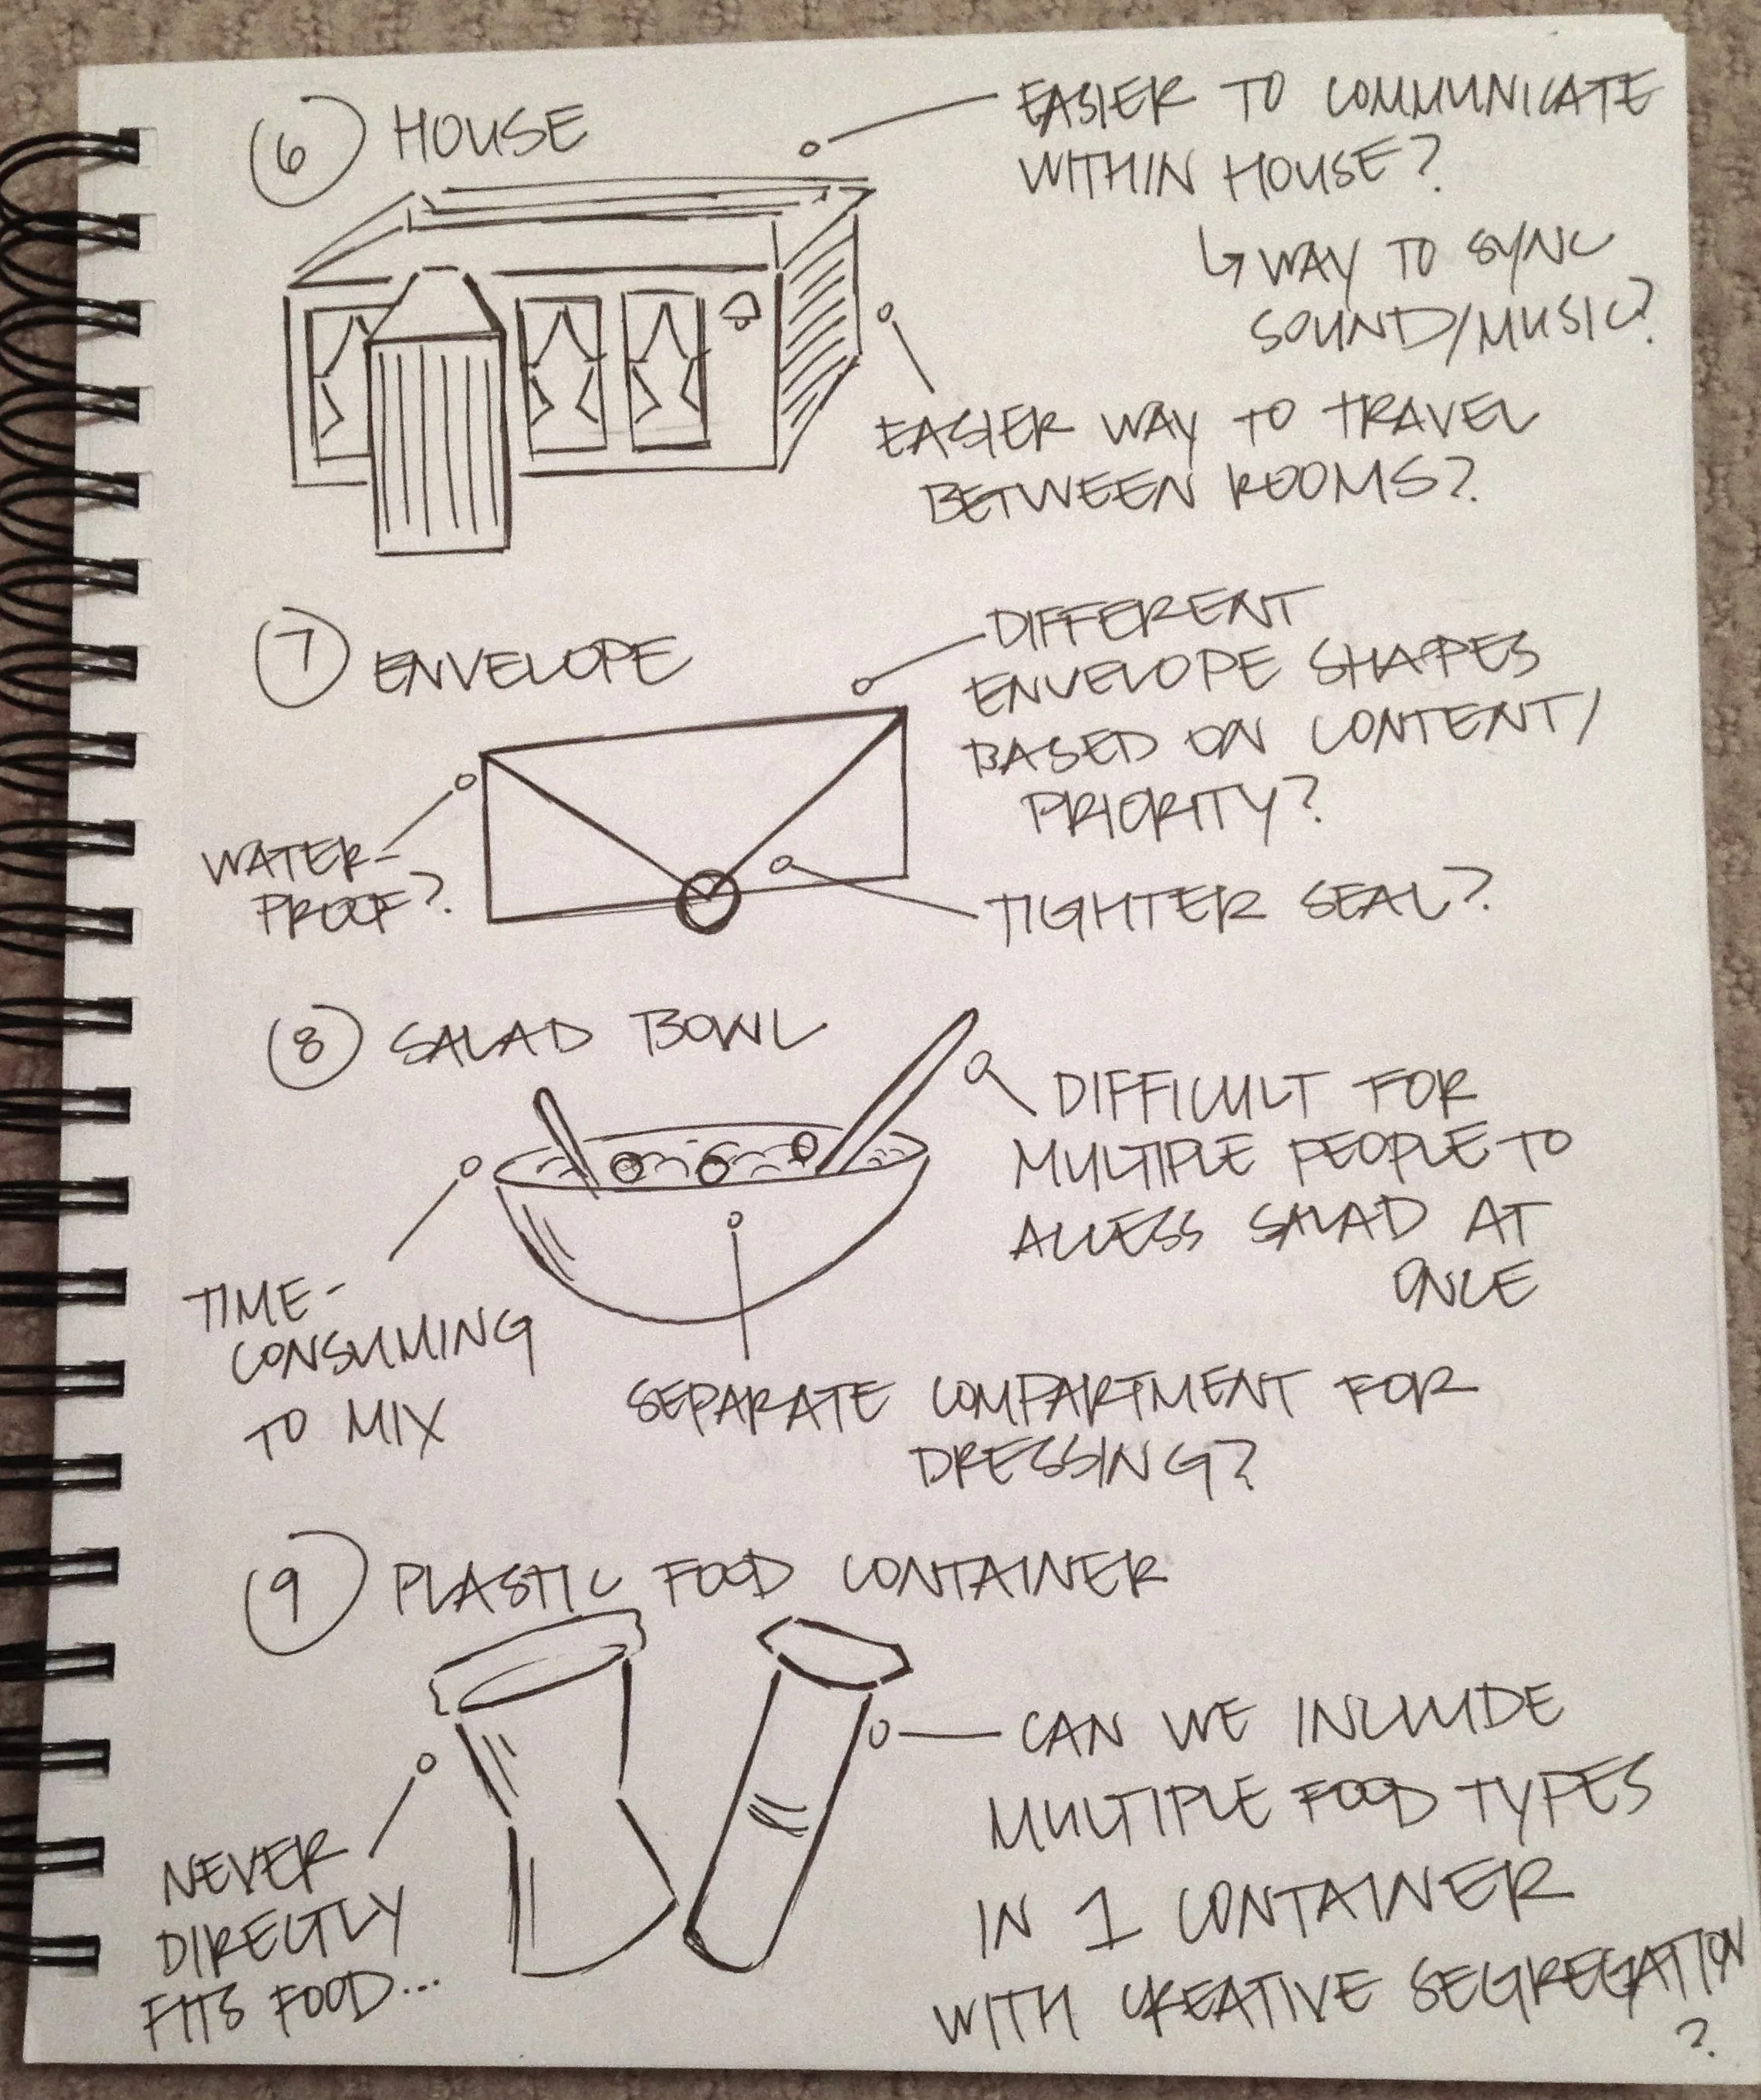 6 HOUSE
EASIER TO COMMUNICATE
WITHIN HOUSE?
↳ WAY TO SYNC
SOUND/MUSIC?
EASIER WAY TO TRAVEL
BETWEEN ROOMS?
7 ENVELOPE
DIFFERENT
ENVELOPE SHAPES
BASED ON CONTENT/
PRIORITY?
WATER-
PROOF?
TIGHTER SEAL?
8 SALAD BOWL
DIFFICULT FOR
MULTIPLE PEOPLE TO
ACCESS SALAD AT
ONCE
TIME-
CONSUMING
TO MIX
SEPARATE COMPARTMENT FOR
DRESSING?
9 PLASTIC FOOD CONTAINER
CAN WE INCLUDE
MULTIPLE FOOD TYPES
IN 1 CONTAINER
WITH CREATIVE SEGREGATION
?
NEVER
DIRECTLY
FITS FOOD...